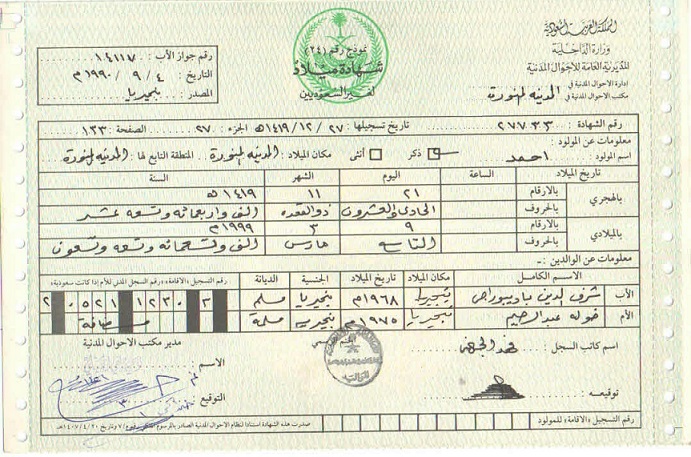 المملكة العربية السعودية
وزارة الداخلية
المديرية العامة للأحوال المدنية
إدارة الأحوال المدنية في
مكتب الأحوال المدنية في المدينه المنورة
نموذج رقم (٢٤)
شهادة ميلاد
لغير السعوديين
رقم جواز الأب : ١٤١١٧
التاريخ : ٤ / ٩ / ١٩٩٠م
المصدر : نيجيريا
رقم الشهادة : ٢٧٧٣٣ تاريخ تسجيلها : ٢٧ / ١٢ / ١٤١٩هـ الجزء : ٢٧ الصفحة ١٣٣
معلومات عن المولود :
اسم المولود : احمد ذكر أنثى مكان الميلاد : المدينه المنورة المنطقة التابع لها : المدينه المنورة
تاريخ الميلاد الساعة اليوم الشهر السنة
بالهجري بالأرقام ٢١ ١١ ١٤١٩هـ
بالحروف الحادي والعشرون ذوالقعده الف واربعمائه وتسعه عشر
بالميلادي بالأرقام ٩ ٣ ١٩٩٩م
بالحروف التاسع مارس الف وتسعمائه وتسعه وتسعون
معلومات عن الوالدين :-
الاسم الكامل مكان الميلاد تاريخ الميلاد الجنسية الديانة رقم التسجيل «الاقامة» رقم السجل المدني للأم إذا كانت سعودية
الأب شرف الدين نيجيريا ١٩٦٨م نيجيريا مسلم
الأم خوله عبدالرحيم نيجيريا ١٩٧٥م نيجيريا مسلمة مضافة
اسم كاتب السجل : فهد الجهني
توقيعه :
مدير مكتب الأحوال المدنية
الاسم
التوقيع
رقم التسجيل «الاقامة» للمولود
صدرت هذه الشهادة استنادا لنظام الأحوال المدنية الصادر بالمرسوم